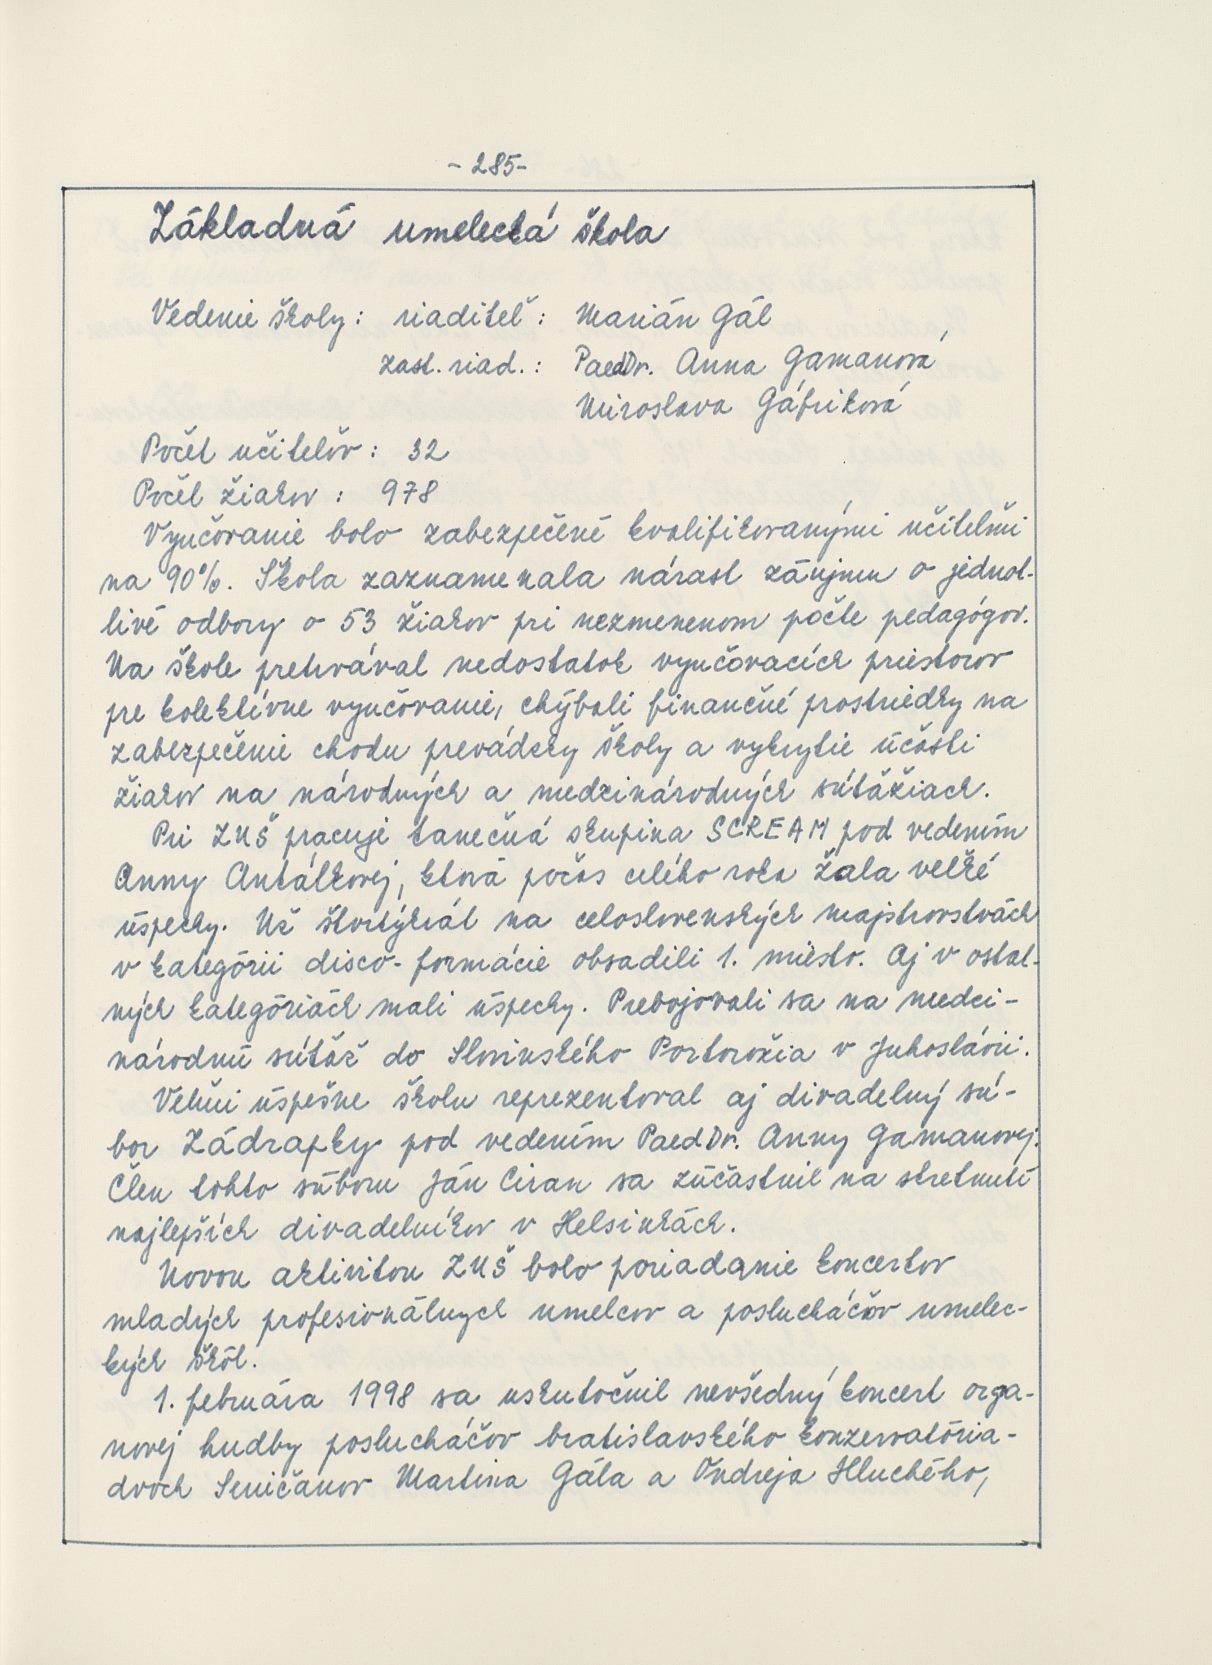 -285-
Základná umelecká škola
Vedenie školy: riaditeľ: Marián Gál
zást. riad.: PaedDr. Anna Gamanová
Miroslava Gáfriková
Počet učiteľov: 32
Počet žiakov: 978
Vyučovanie bolo zabezpečené kvalifikovanými učiteľmi
na 90%. Škola zaznamenala nárast záujmu o jednot-
livé odbory o 53 žiakov pri nezmenenom počte pedagógov.
Na škole pretrvával nedostatok vyučovacích priestorov
pre kolektívne vyučovanie, chýbali finančné prostriedky na
zabezpečenie chodu prevádzky školy a vykrytie účasti
žiakov na národných a medzinárodných súťažiach.
Pri ZUŠ pracuje tanečná skupina SCREAM pod vedením
Anny Antálkovej, ktorá počas celého roka žala veľké
úspechy. Už štvrtýkrát na celoslovenských majstrovstvách
v kategórii disco-formácie obsadili 1. miesto. Aj v ostat-
ných kategóriách mali úspechy. Prebojovali sa na medzi-
národnú súťaž do Slovinského Portorožia v Juhoslávii.
Veľmi úspešne školu reprezentoval aj divadelný sú-
bor Zádrapky pod vedením PaedDr. Anny Gamanovej.
Člen tohto súboru Ján Ciran sa zúčastnil na stretnutí
najlepších divadelníkov v Helsinkách.
Novou aktivitou ZUŠ bolo poriadanie koncertov
mladých profesionálnych umelcov a poslucháčov umelec-
kých škôl.
1. februára 1998 sa uskutočnil nevšedný koncert orga-
novej hudby poslucháčov bratislavského konzervatória-
dvoch Seničanov Martina Gála a Ondreja Hluchého,